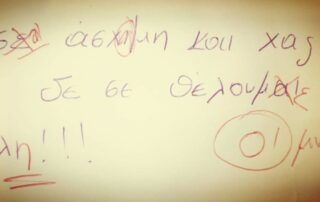 άσχημη και χαζ
δε σε θέλουμε
λη!!! οι μ